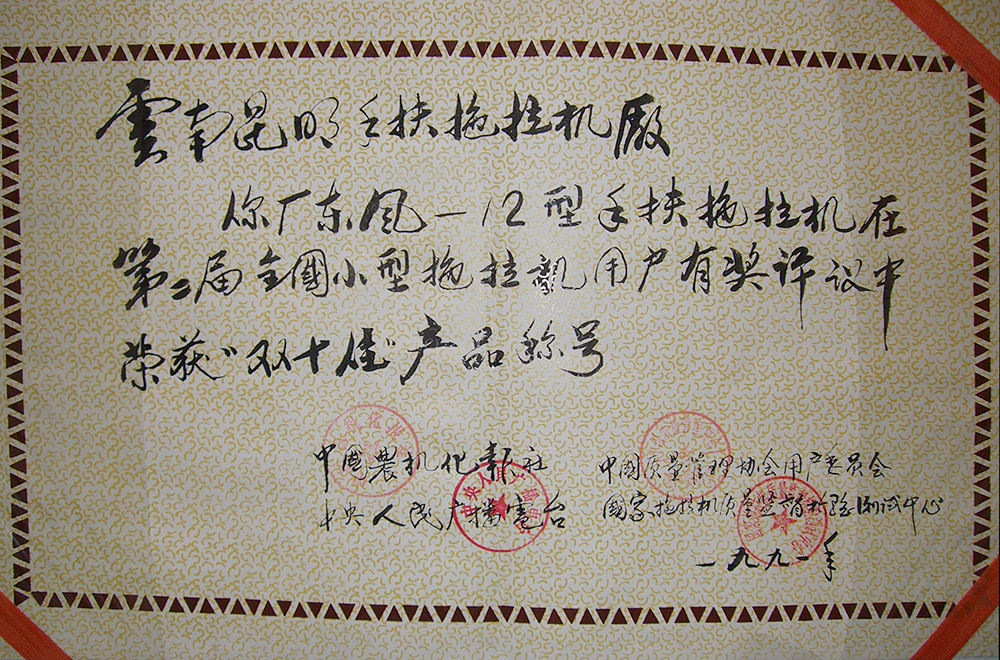 雲南昆明手扶拖拉机廠
你厂东风—12型手扶拖拉机在
第二届全國小型拖拉机用户有奖评议中
荣获"双十佳"产品称号
中國農机化報社
中央人民广播電台
中國质量管理协会用户委员会
國家拖拉机质量监督检验测试中心
一九九一年